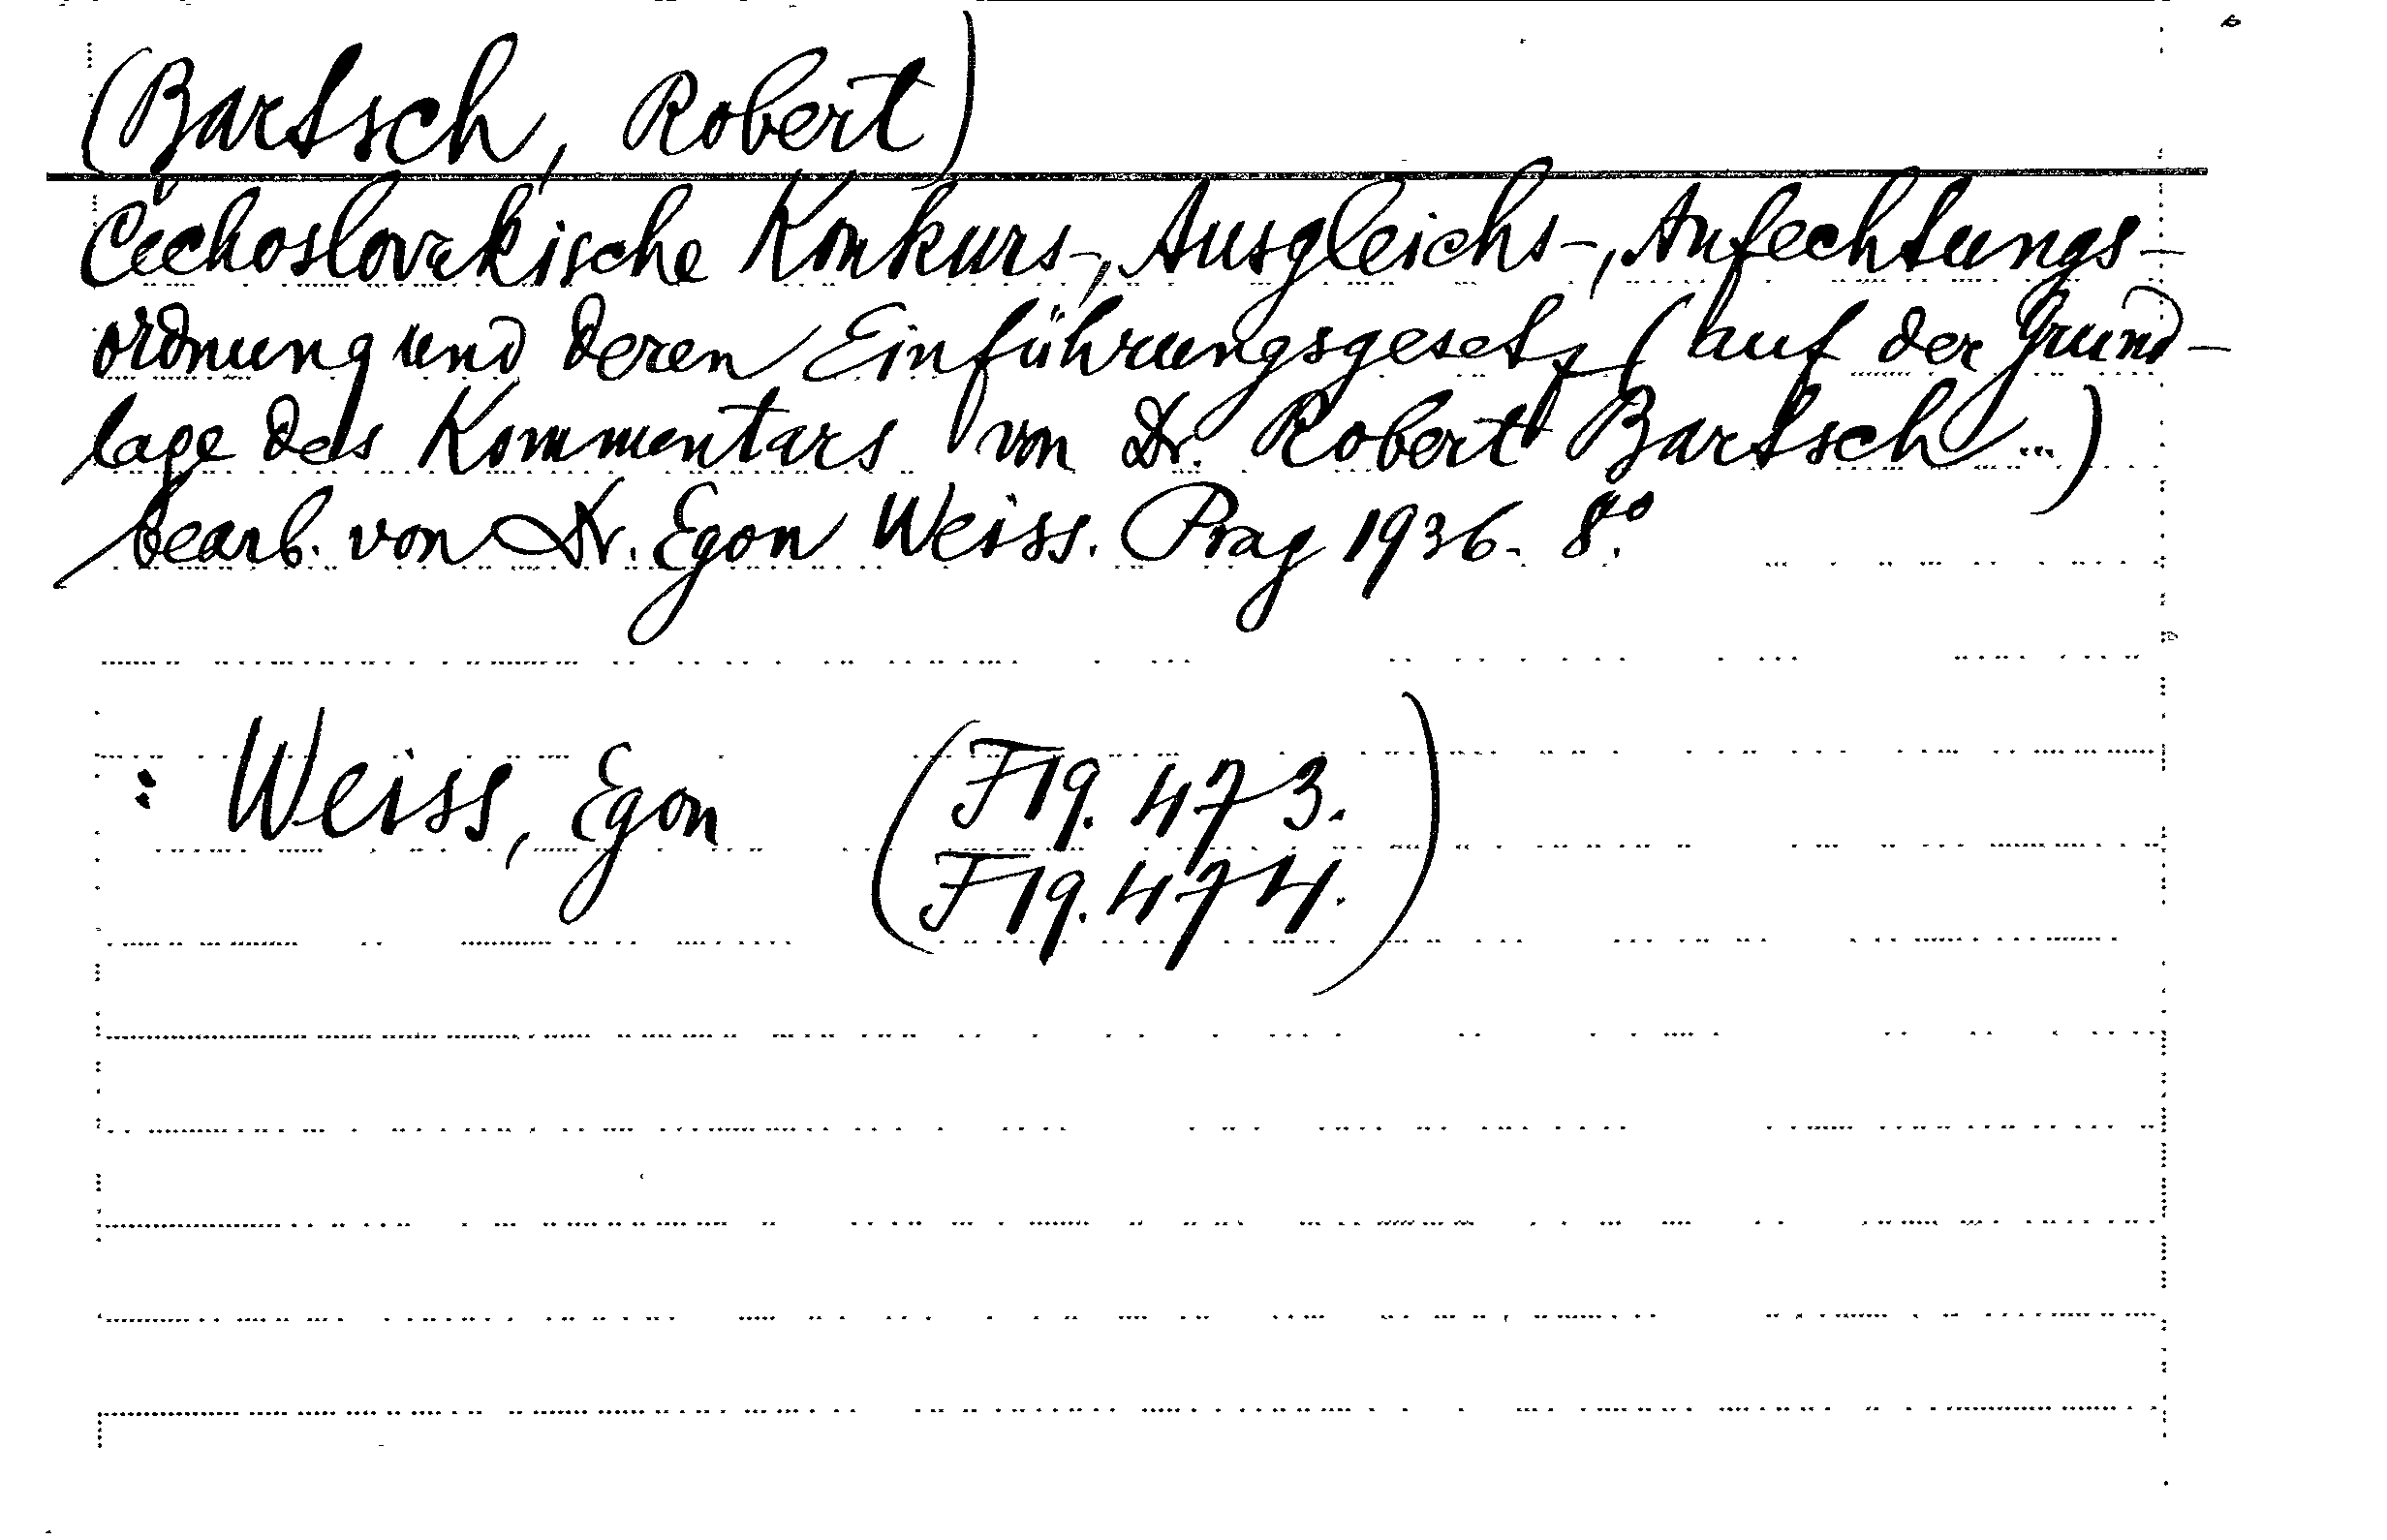 (Bartsch, Robert)
Čechoslovakische Konkurs-, Ausgleichs-, Anfechtungs-
ordnung und deren Einführungsgesetz (auf der Grund-
lage des Kommentars von Dr. Robert Bartsch ...)
bearb. von Dr. Egon Weiss. Prag 1936. 8°.
: Weiss, Egon (F19.473.
F19.474.)